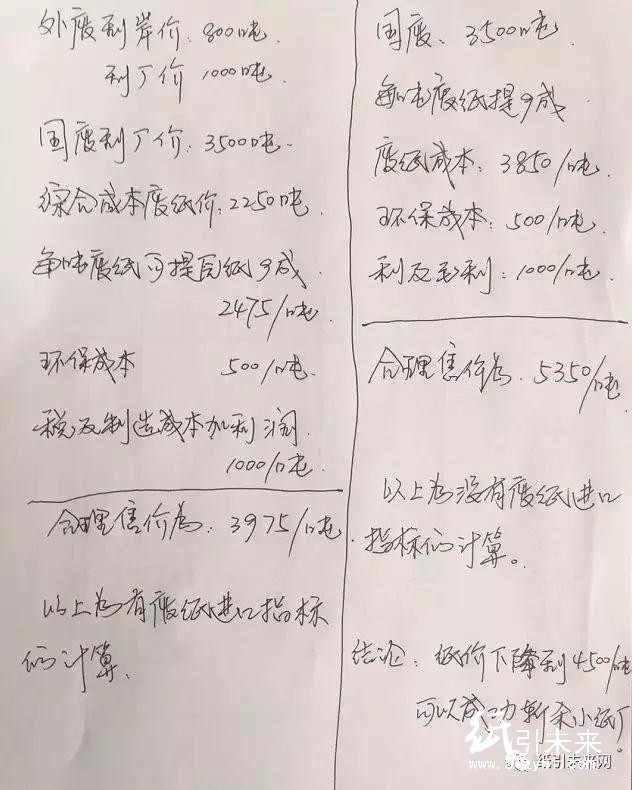 外废到岸价:800/吨
到厂价 1000/吨.
国废到厂价:3500/吨.
综合成本废纸价:2250/吨.
每吨废纸可提原纸9成.
2475/吨
环保成本 500/吨.
税及制造成本加利润.
1000/吨.
合理售价为:3975/吨.
以上为有废纸进口指标
们计算.
国废:3500/吨.
每吨废纸提9成
废纸成本:3850/吨.
环保成本:500/吨.
利及毛利:1000/吨.
合理售价为:5350/吨.
以上为没有废纸进口
指标们计算。
结论:纸价下降到4500/吨
可以成功斩杀小纸厂!
纸引未来
纸引未来网